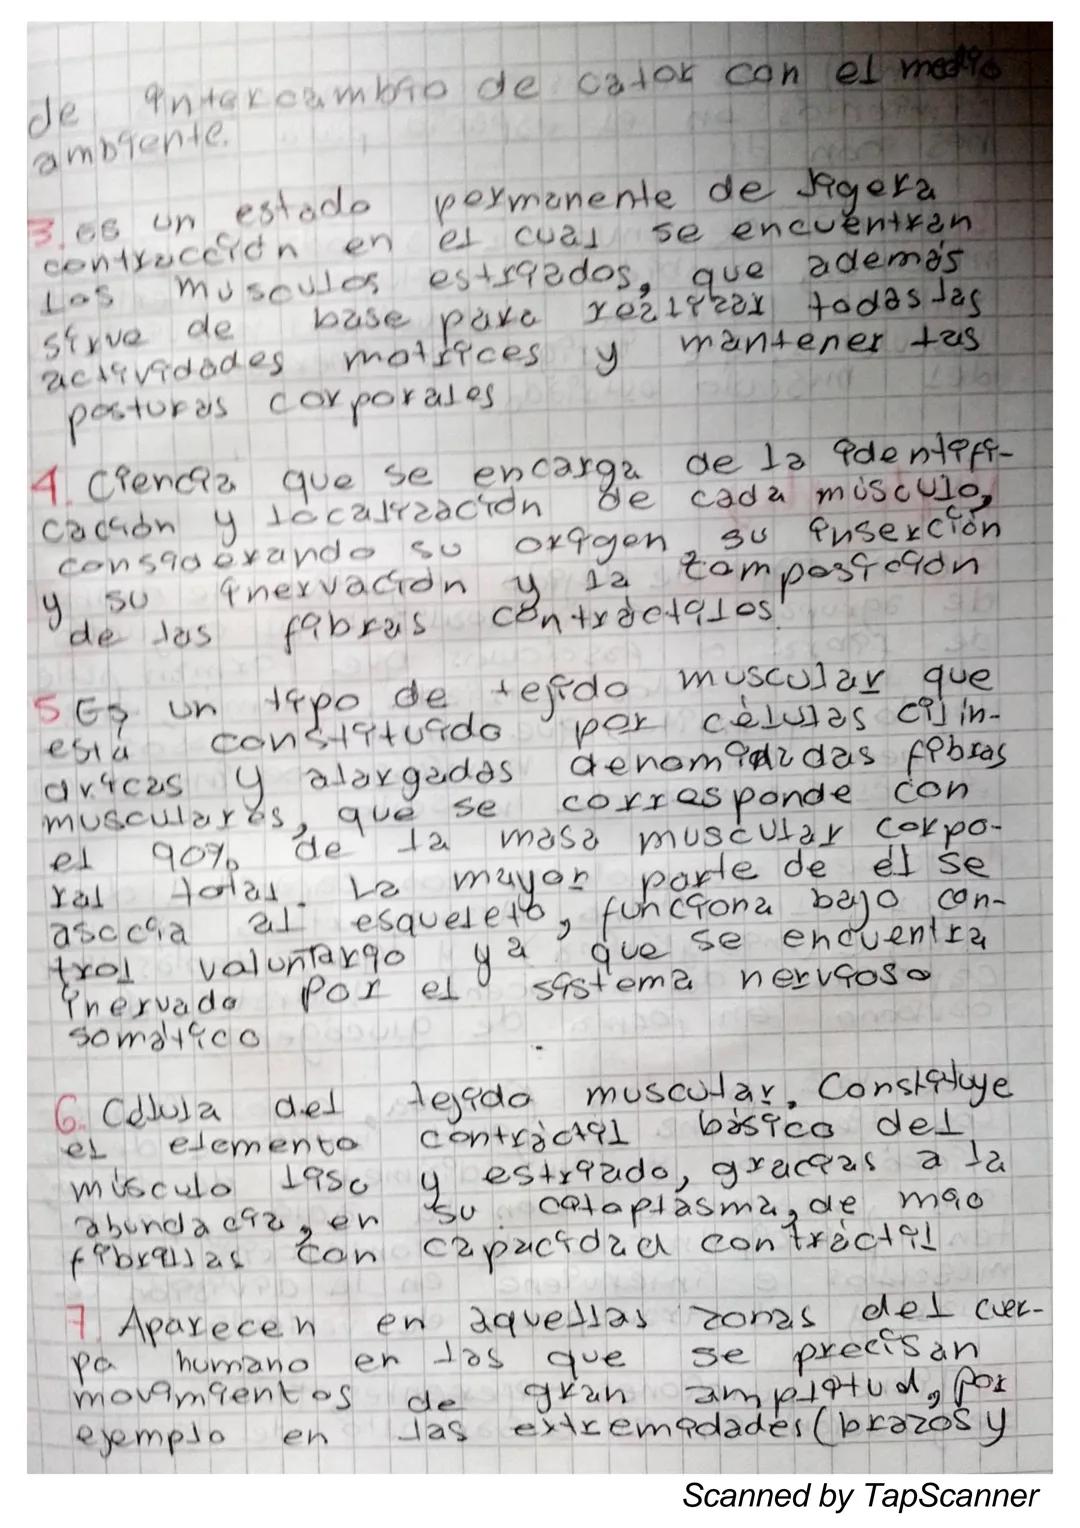 de intercambio de calor con el medio
ambiente.
3. es un estado permanente de ligera
contracción en el cual se encuentran
Los musculos estriados, que además
sirve de base para realizar todas las
actividades motrices y mantener las
posturas corporales
4. Ciencia que se encarga de la identifi-
cación y localización de cada músculo,
considerando su origen su inserción
y su inervación y la composición
de las fibras contráctiles
5 Es un tipo de tejido muscular que
está constituido por células cilin-
dricas y alargadas denominadas fibras
musculares, que se corresponde con
el 90% de la masa muscular corpo-
ral total. La mayor parte de él se
asocia al esqueleto, funciona bajo con-
trol voluntario ya que se encuentra
inervado por el sistema nervioso
somático
6. Célula del tejido muscular. Constituye
el elemento contráctil básico del
músculo liso y estriado, gracias a la
abundacia, en su citoplasma, de mio
fibrillas con capacidad contráctil
7 Aparecen en aquellas zonas del cuer-
po humano en las que se precisan
movimientos de gran amplitud, por
ejemplo en las extremidades (brazos y
Scanned by TapScanner